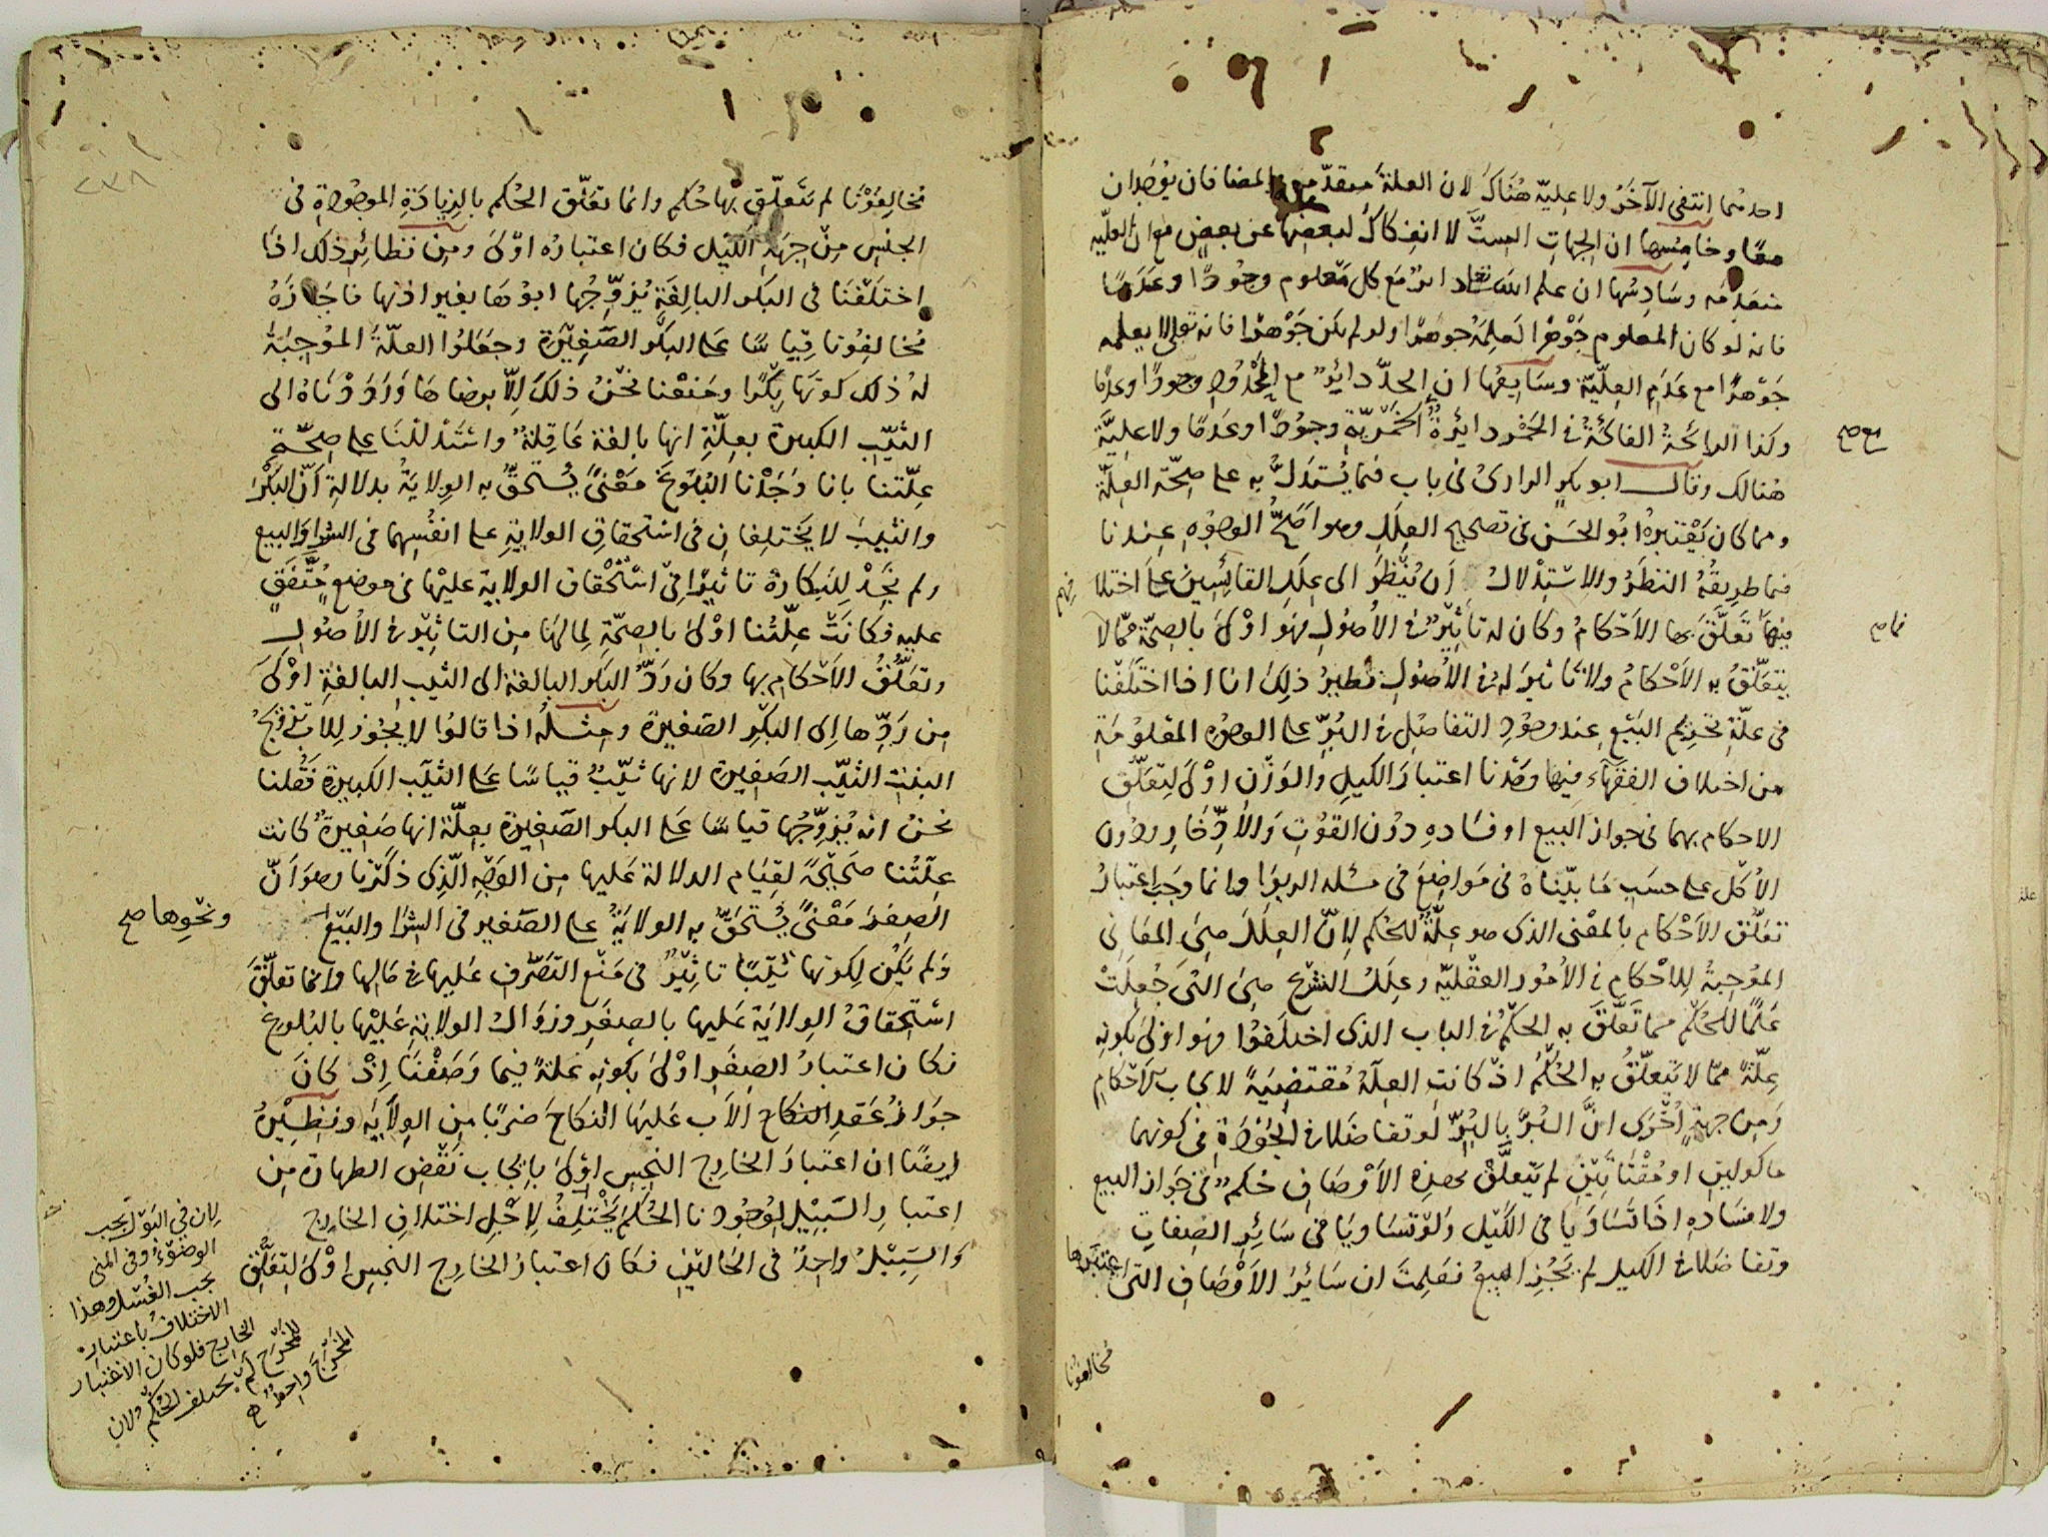 احدهما انتفى الآخَرُ ولا عليّة هُناكَ لان العلةَ متقدّمة والمضافان يوجدان
معًا وخامِسها ان الجهاتِ الستَّ لا انفِكاكَ لبعضِها عن بعضٍ مع ان العليّه
متقدمه وسَادِسُها ان علم الله تعالى دائرٌ مَع كل مَعْلوم وجُودًا وعَدَمًا
فانه لو كان المعلوم جَوْهرًا لَعلِمَهُ جوهرًا ولو لم يكن جَوْهرًا فانه تعالى لا يعلمه
جَوْهرًا مع عَدَمِ العِلّيّة وسَابِعُها ان الحدّ دائِرٌ مع المحْدُود وجودًا وعدمًا
وكذا الرائحَةُ الفائحَةُ في الخَمْر دائرةٌ مع الخمْريّةِ وجودًا وعَدمًا ولا عليّةَ
هُنالك وقال ابو بكرٍ الرازىُ فى باب فيما يُستدَلُّ به على صحّة العِلّة
ومما كان يَعْتبرهُ ابُو الحسَن فى تصحيح العِلَلِ وهو اَصَحُّ الوجُوهِ عِندنا
فيما طريقُهُ النظَرُ والاسْتِدْلالُ اَن يُنْظَرَ الى عِلَلِ القائِسِينَ على اختلافِهم
فيها فما تَعلَّقَ بها الاَحْكامُ وكان له تأثِيْرٌ فى الاُصُولِ فهُو اوْلىَ بالصِحّة ممّا لا
يتعَلّقُ به الاَحْكامُ ولا تَاثيرَ له فى الاُصُولِ نظيرُ ذلِكَ انا اذا اختَلَفْنا
فى علّةِ تحْرِيم البَيْع عِند وجُودِ التفاضُلِ فى البُرِّ على الوجُوه المعْلومَةِ
من اختلاف الفقهاء فيها وجَدْنا اعتبارَ الكيلِ والوَزْنِ اوْلىَ لِتعَلّق
الاحكام بهما فى جواز البَيع او فسَادهِ دوُن القوُتِ والاِدِّخَارِ ودُون
الاُكْل على حسَبِ مَا بيّناهُ فى مَواضِعَ فى مسئله الربوا وانما وجَبَ اعتبارُ
تعَلّق الاَحْكام بالمعْنى الذى هو عِلّةٌ للحُكم لِانّ العِلَلَ هِىَ المعَانى
الموُجِبةُ لِلاحْكام فى الاُمُور العقْليّه وعِلَلُ الشرْعِ هِىَ التىَ جُعِلَتْ
عَلَمًا للحُكْم فما تَعلّقَ به الحكمُ فى الباب الذى اختلَفوُا فهُو اوْلىَ بكونِه
عِلّةً ممّا لا يَتعلّقُ به الحُكمُ اذْ كانتِ العِلّةُ مُقتضِيَةً لايجابِ الاَحْكامِ
وَمِن جهةٍ اُخْرَى انَّ البُرَّ بالبُرِّ لوتفاضَلا فى الجَوْدَةِ فى كونهما
ماكولينِ او مُقْتَاتَيْنِ لم يتعلَّقْ بهذِهِ الاَوْصَافِ حُكمٌ فى جَوازِ البيع
ولا فسَادِهِ اذَا تَسَاوَيَا فى الكَيْل ولَوْ تسَاويَا فى سَائِرِ الصِفاتِ
وتفاضَلا فى الكيل لم يَجُزِ البيعُ فعَلِمتَ ان سَائرَ الاَوْصَافِ التىَ اعتبَرَها
مُخالِفوُنا
مُخالِفُوْنا لم يَتَعلّق بها حُكم وانما تعَلّق الحُكم بالزيادَةِ الموجُودَةِ فى
الجنْسِ مِنْ جِهةِ الكَيْل فكان اعتبارُه اوْلىَ ومِن نظائِر ذلك اذَا
اختَلَفْنَا فى البكر البالِغَةِ يُزوِّجُها ابوُهَا بغير اذنها فاجَازَهُ
مُخالِفوُنا قِيَاسًا عَلى البكْر الصَّغِيْرَة وجَعَلُوا العلّةَ الموُجِبَةَ
لهُ ذلك كونَها بِكْرًا ومَنعْنا نحْنُ ذلكَ اِلّا برِضاهَا ورَدَدْنَاهُ الى
الثيّبِ الكبيرة بعِلّةِ انها بالغة عَاقِلةٌ واسْتَدْلَلْنَا على صِحّة
عِلّتنا بانا وَجَدْنا البُلوُغَ مَعْنىً يُستحَقُّ به الوِلايَةُ بدلالةِ اَنّ البكْرَ
والثيّبَ لا يَختلِفانِ فى اسْتحقاقِ الولايةِ على انفُسِهما فى الشِرا والبيع
ولم نجِدْ لِلبكارَة تاثيرًا فى اسْتحْقاقِ الولايةِ عليْها فى موضعٍ مُتَّفَقٍ
عليه فكانَتْ عِلّتُنا اوْلىَ بالصِحّةِ لِما لهَا مِن التاثِيْر فى الاُصُولِ
وتعَلّقُ الاَحْكامِ بها وكان رَدُّ البكر البالغةِ الى الثيب البالغةِ اوْلىَ
مِن رَدِّها اِلى البكْرِ الصَغيرة ومثلُه اذا قالوُا لا يجوُز لِلابِ تزويجُ
البنتِ الثيّبِ الصَغِيرة لانها ثيّبٌ قياسًا عَلى الثيّب الكبيرة فقُلنا
نحنُ انه يُزوّجُها قياسًا عَلى البكر الصَغيرة بعِلّة انها صَغِيرةٌ كانت
علّتُنا صَحِيْحَةً لقِيَام الدلالة عَليها مِن الوَجْهِ الّذِى ذكَرْنا وهو اَنّ
الصِغرَ مَعْنىً يُستحَقُّ به الولايَةُ على الصَغير فى الشِرَا والبَيْع
ونحْوِها صح
ولم يَكُنْ لِكونها ثيّبًا تاثِيْرٌ فى مَنْع التَصَرّفِ عَليها فى مَالِها وانما تعلّقَ
اسْتحِقاقُ الولايَة عَليها بالصِغَرِ وزوَالُ الولايَةِ عَليْها بالبُلوغ
فكان اعتبارُ الصِغَرِ اوْلىَ بكونِه عَلةً فيما وَصَفْنَا اِذْ كانَ
جوَازُ عَقدِ النكاح الاَب عَليهَا النكاحَ ضربًا مِن الوِلايَه ونظِيْرهُ
ايضًا ان اعتبارَ الخارج النجِس اوْلىَ بايجابِ نَقْضِ الطهارة مِن
اعتبارِ السَبِيْلِ لِوجُودِنا الحُكمَ يَخْتلِفُ لِاجْلِ اختلافِ الخارج
وَالسَبِيْلُ واحِدٌ فى الحَاليَنِ فكان اعتبارُ الخارج النجِس اوْلىَ لِتعَلُّقِ
لِان فى البَوْل يجب
الوضوُءُ وفى المنى
يجب الغُسْل وهذا
الاختلافُ باعتبار
الخارج فلوكان الاعتبار
للمخْرَج لم يختلف الحُكم لان
المخْرَجَ واحِدٌ صح